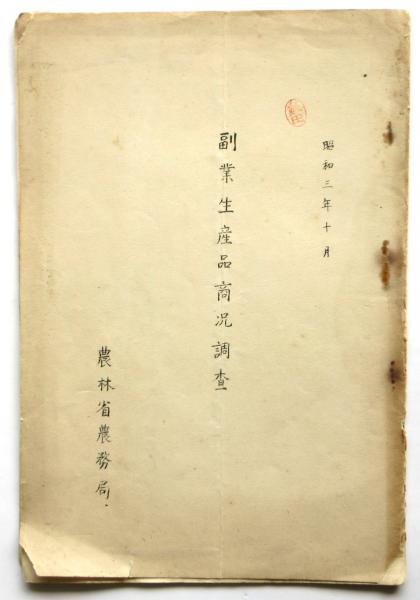 昭和三年十月
副業生産品商況調査
農林省農務局